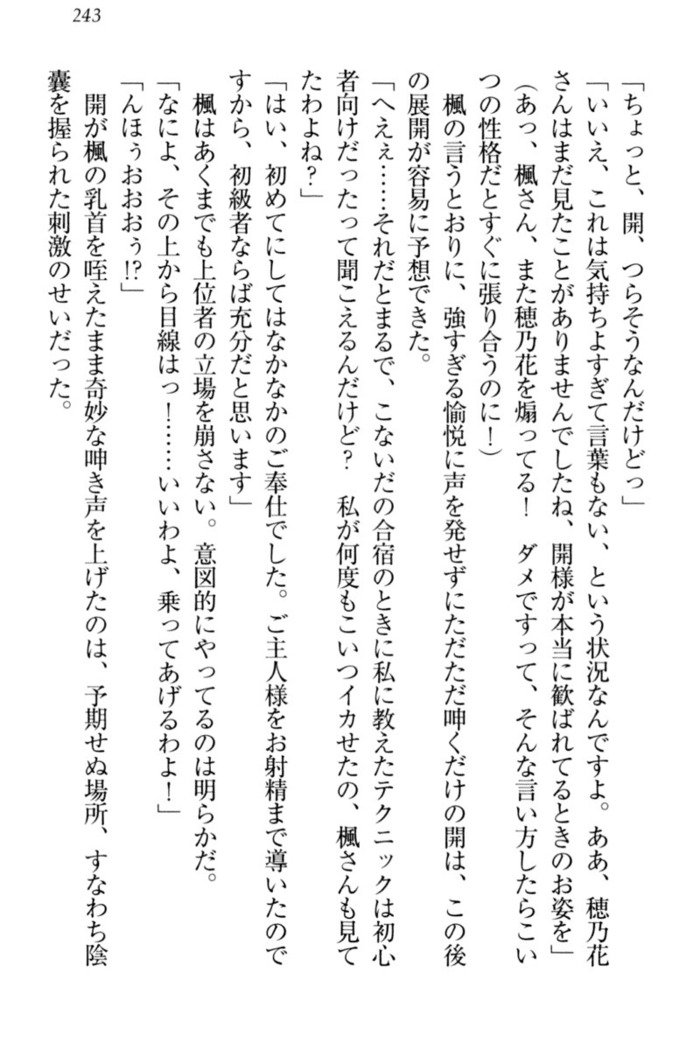 243
「ちょっと、開、つらそうなんだけどっ」
「いいえ、これは気持ちよすぎて言葉もない、という状況なんですよ。ああ、穂乃花
さんはまだ見たことがありませんでしたね、開様が本当に歓ばれてるときのお姿を」
（あっ、楓さん、また穂乃花を煽ってる！　ダメですって、そんな言い方したらこい
つの性格だとすぐに張り合うのに！）
　楓の言うとおりに、強すぎる愉悦に声を発せずにただただ呻くだけの開は、この後
の展開が容易に予想できた。
「へえぇ……それだとまるで、こないだの合宿のときに私に教えたテクニックは初心
者向けだったって聞こえるんだけど？　私が何度もこいつイカせたの、楓さんも見て
たわよね？」
「はい、初めてにしてはなかなかのご奉仕でした。ご主人様をお射精まで導いたので
すから、初級者ならば充分だと思います」
　楓はあくまでも上位者の立場を崩さない。意図的にやってるのは明らかだ。
「なによ、その上から目線はっ！……いいわよ、乗ってあげるわよ！」
「んほぅおおおぅ!?」
　開が楓の乳首を咥えたまま奇妙な呻き声を上げたのは、予期せぬ場所、すなわち陰
嚢を握られた刺激のせいだった。